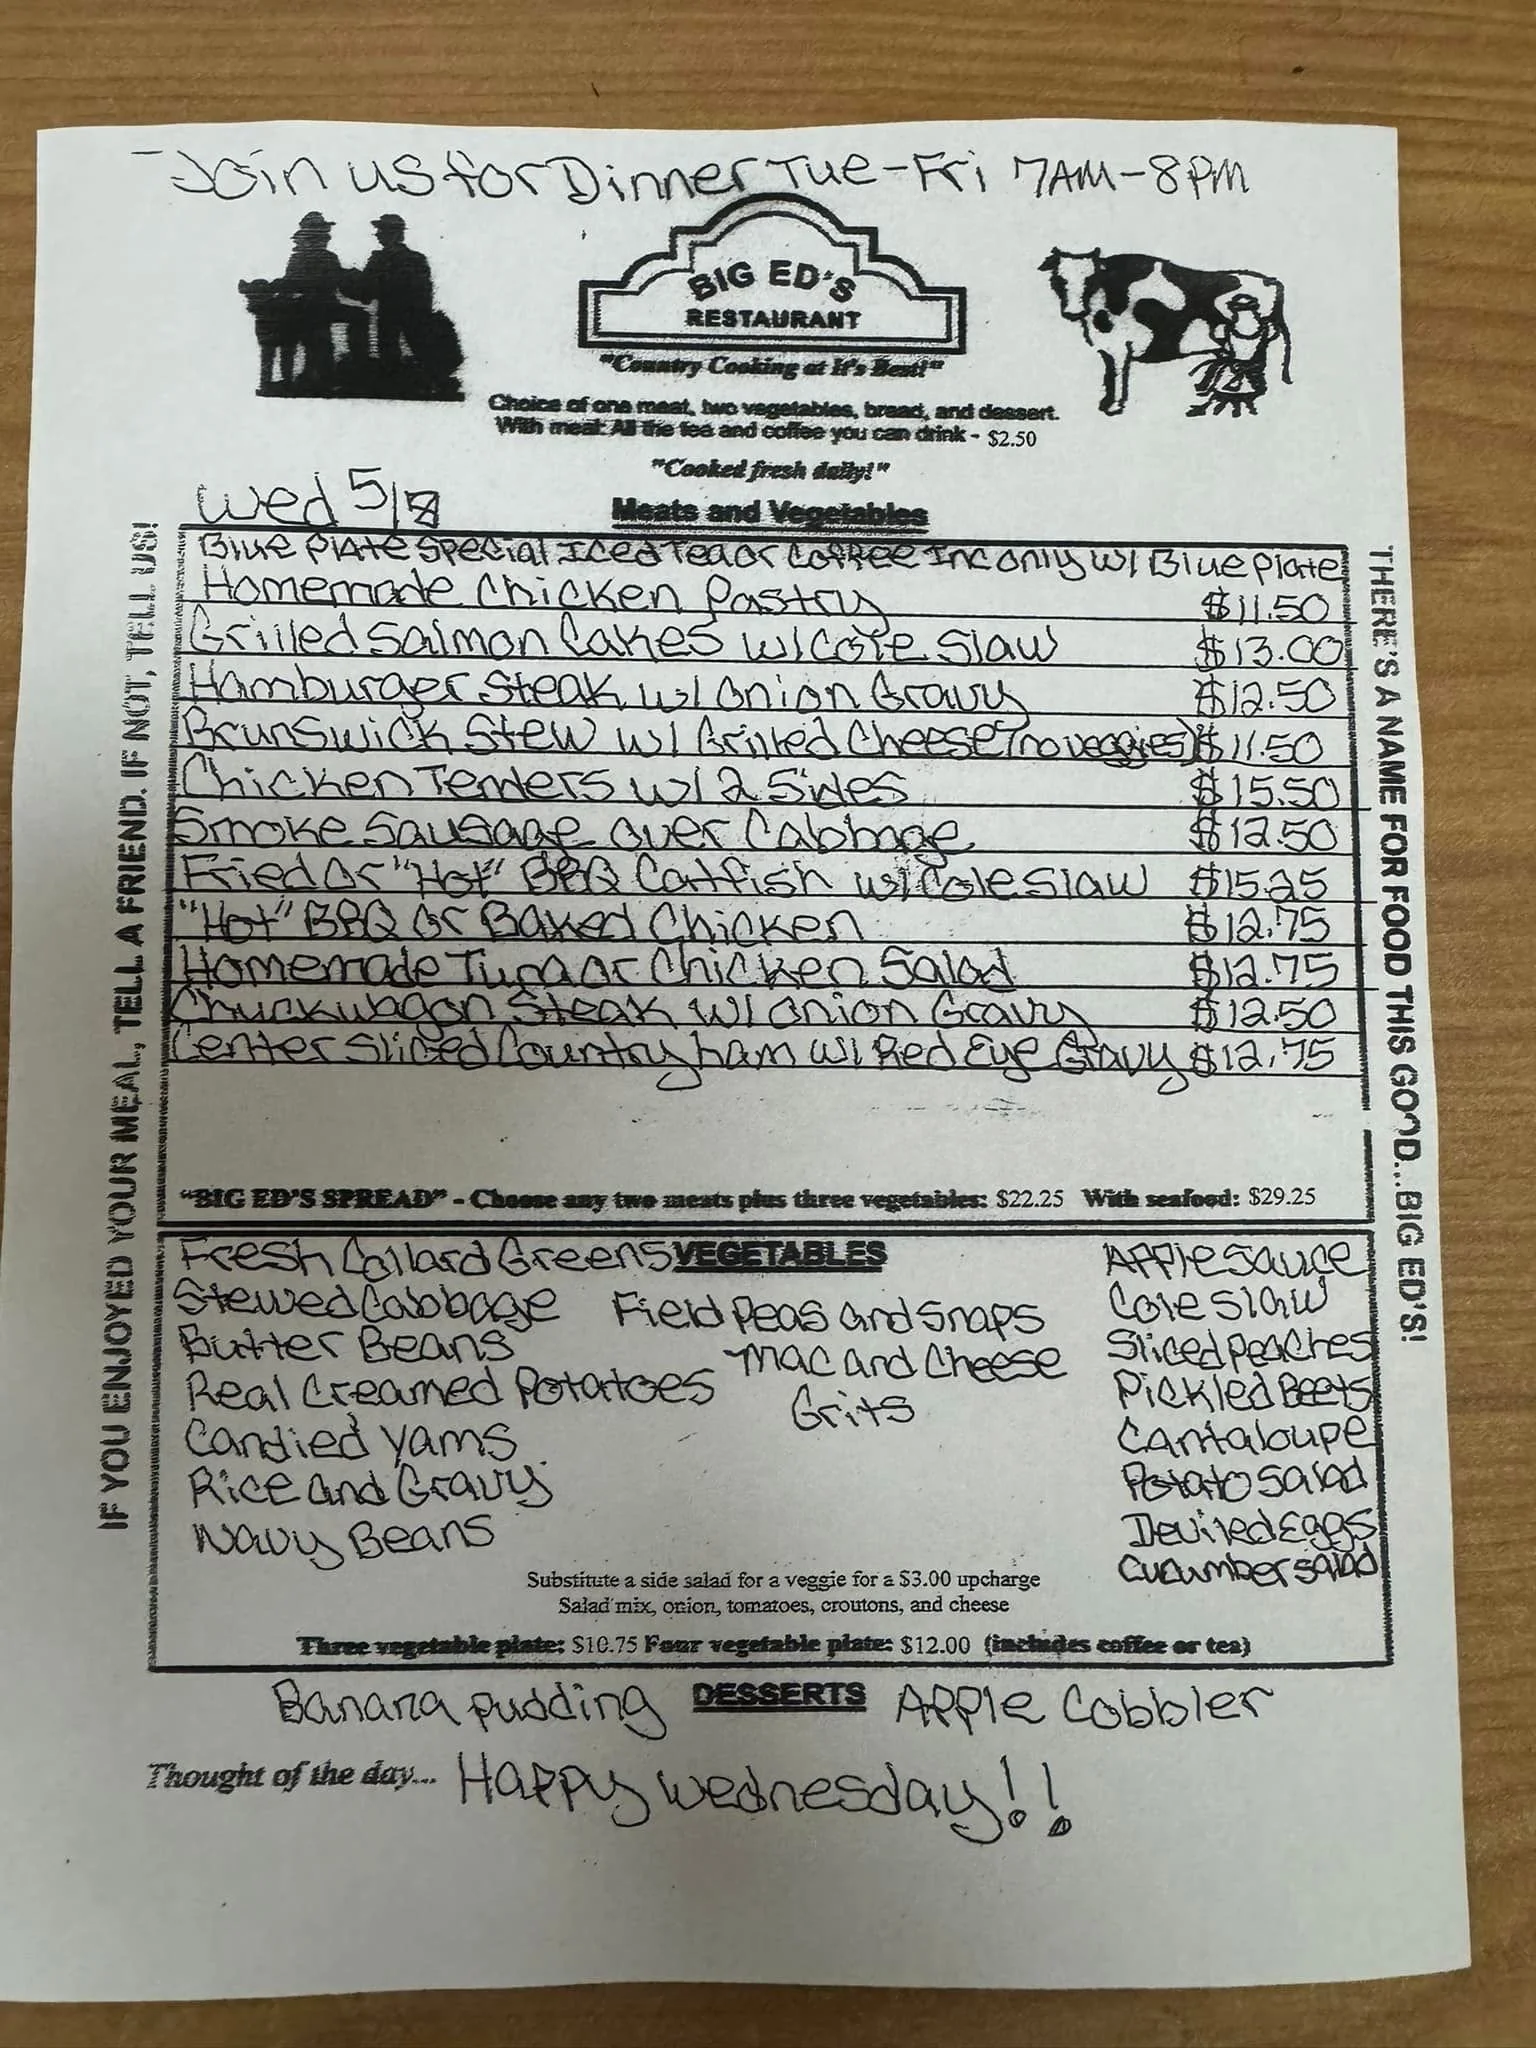 Join us for Dinner Tue-Fri 7AM-8PM
BIG ED'S
RESTAURANT
"Country Cooking at It's Best!"
Choice of one meat, two vegetables, bread, and dessert.
With meal: All the tea and coffee you can drink - $2.50
"Cooked fresh daily!"
Wed 5/8
Meats and Vegetables
Blue Plate Special Iced Tea or Coffee Inc only w/ Blue Plate
Homemade Chicken Pastry $11.50
Grilled Salmon Cakes w/ Cole Slaw $13.00
Hamburger Steak w/ Onion Gravy $12.50
Brunswick Stew w/ Grilled Cheese (no veggies) $11.50
Chicken Tenders w/ 2 Sides $15.50
Smoke Sausage over Cabbage $12.50
Fried Or "Hot" BBQ Catfish w/ Cole Slaw $15.25
"Hot" BBQ Or Baked Chicken $12.75
Homemade Tuna or Chicken Salad $12.75
Chuckwagon Steak w/ Onion Gravy $12.50
Center Sliced Country ham w/ Red Eye Gravy $12.75
"BIG ED'S SPREAD" - Choose any two meats plus three vegetables: $22.25 With seafood: $29.25
VEGETABLES
Fresh Collard Greens
Stewed Cabbage
Butter Beans
Real Creamed Potatoes
Candied Yams
Rice and Gravy
Navy Beans
Field Peas and Snaps
Mac and Cheese
Grits
Apple Sauce
Cole Slaw
Sliced Peaches
Pickled Beets
Cantaloupe
Potato Salad
Deviled Eggs
Cucumber salad
Substitute a side salad for a veggie for a $3.00 upcharge
Salad mix, onion, tomatoes, croutons, and cheese
Three vegetable plate: $10.75 Four vegetable plate: $12.00 (includes coffee or tea)
DESSERTS
Banana pudding
Apple Cobbler
Thought of the day... Happy Wednesday!!
IF YOU ENJOYED YOUR MEAL, TELL A FRIEND. IF NOT, TELL US!
THERE'S A NAME FOR FOOD THIS GOOD...BIG ED'S!